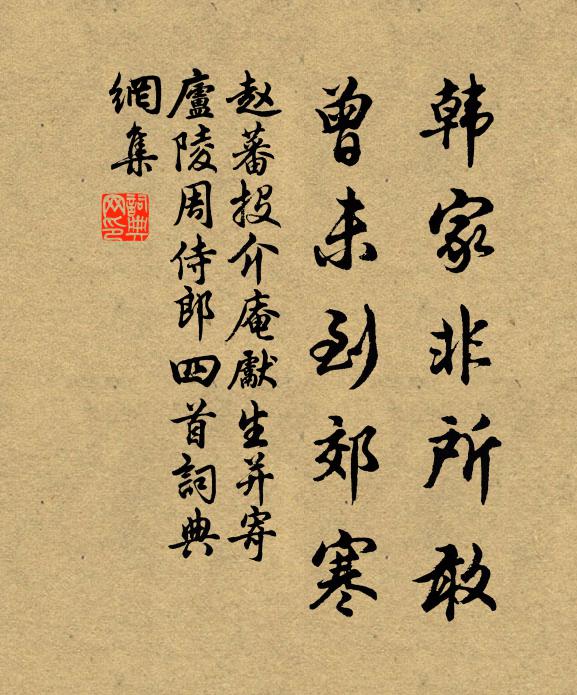 韩家非所敢
曾未到郊寒
赵蕃投介庵獻生并寄
廬陵周侍郎四首詞典
網集
詞典网印